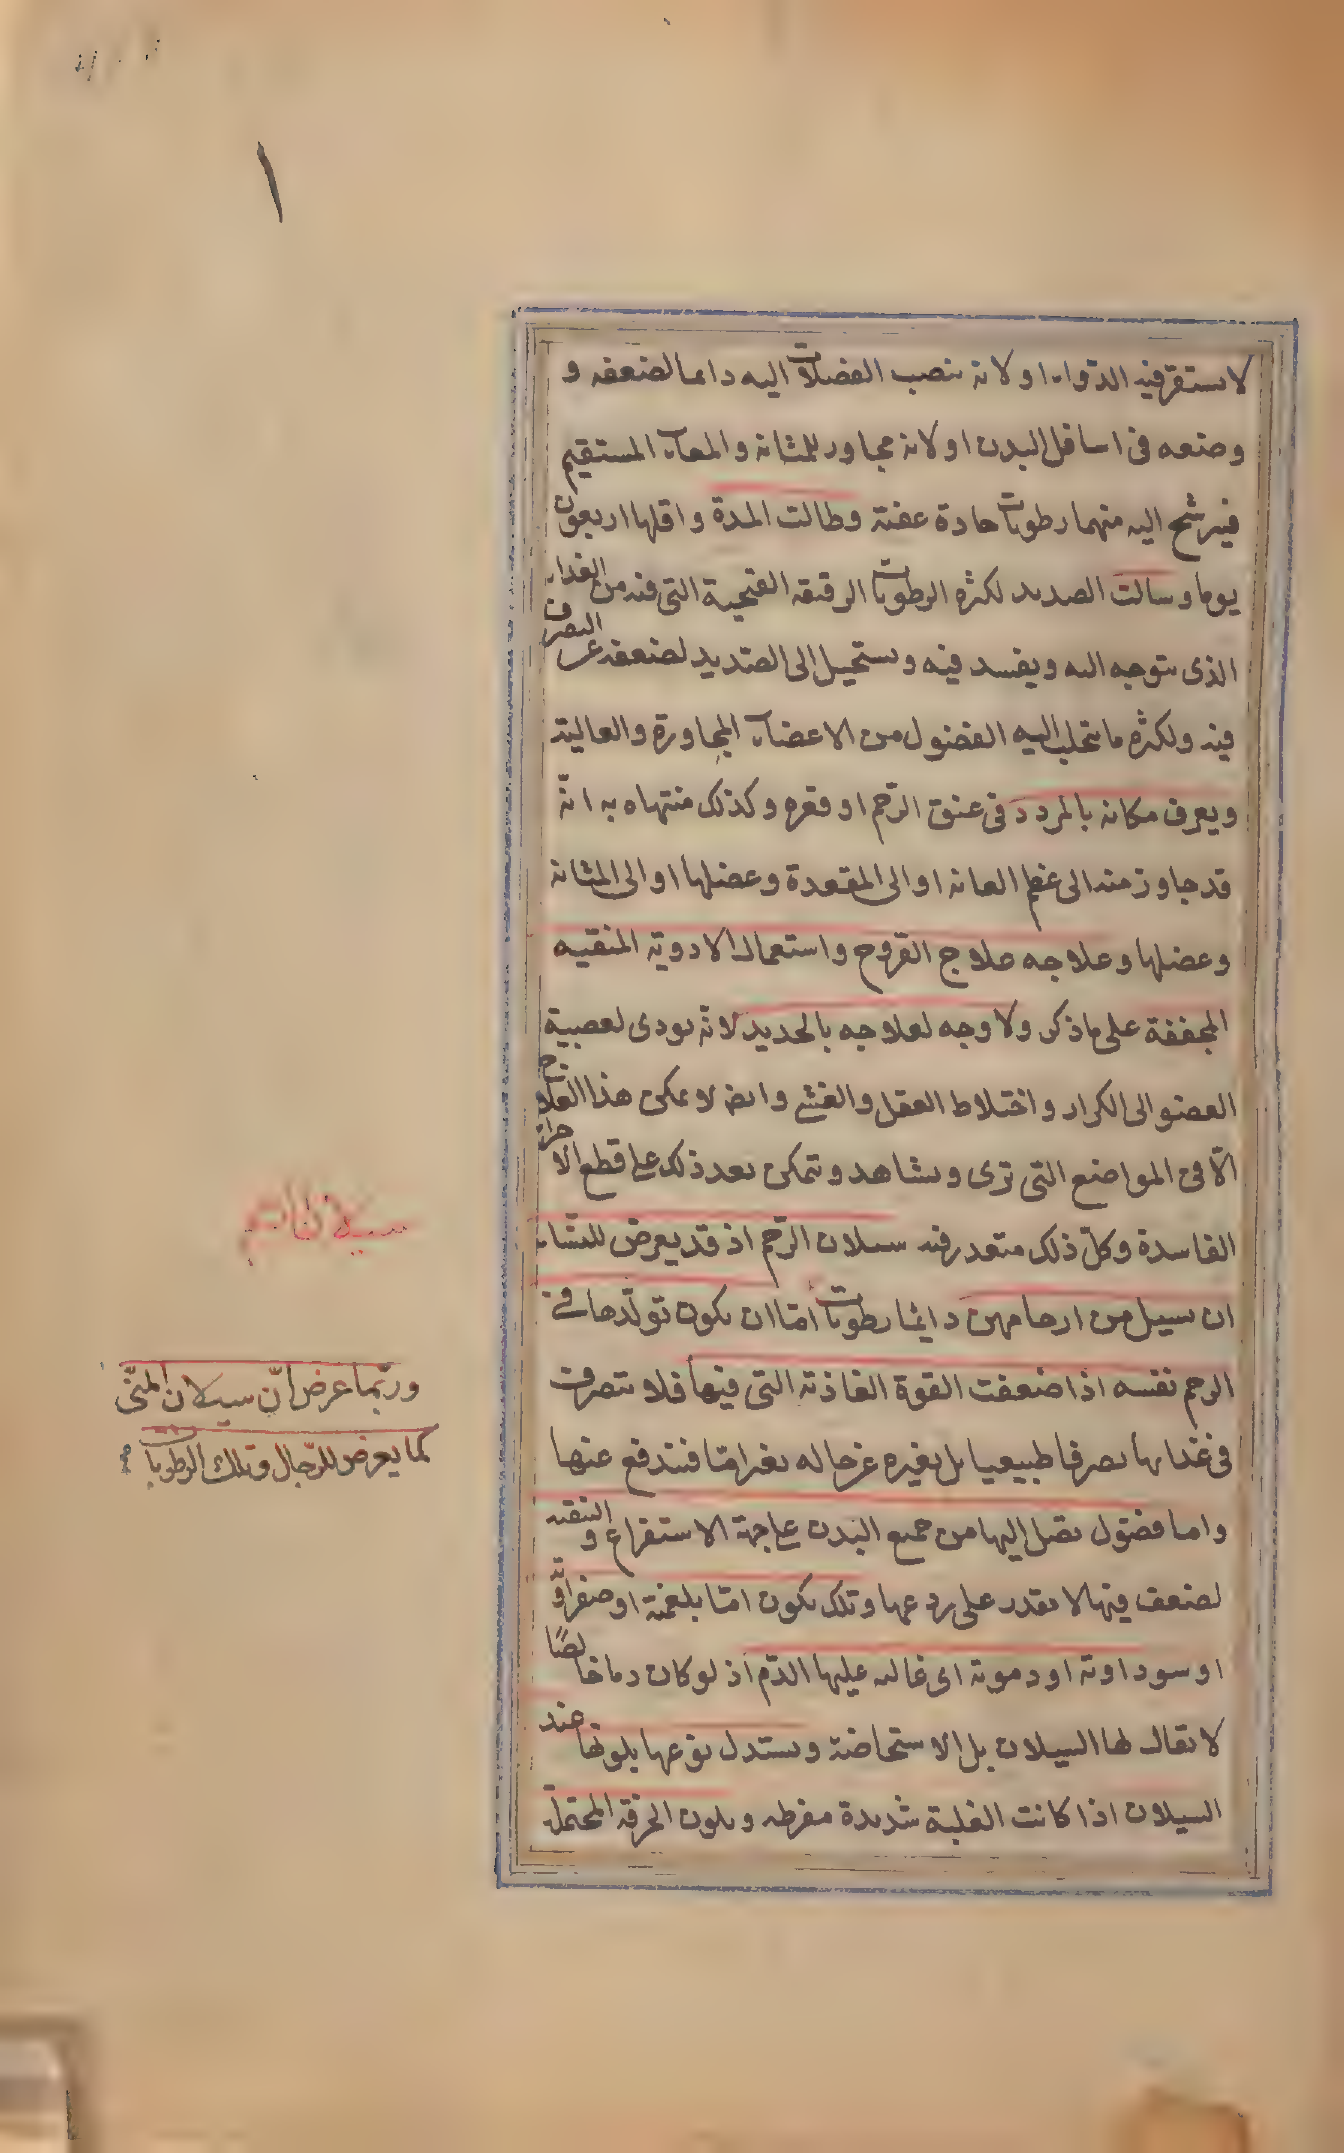 لا يستقر فيه الدواء او لانه ينصب الفضلات اليه دائما لضعفه و
وضعه فى اسافل البدن او لانه مجاور للمثانة والمعاء المستقيم
فيترشح اليه منهما رطوبات حادة عفنة وطالت المدة واقلها اربعون
يوما وسالت الصديد لكثرة الرطوبات الرقيقة الفجية التى فيه من الغداء
الذى يتوجه اليه ويفسد فيه ويستحيل الى الصديد لضعفه عن التصرف
فيه ولكثرة ما يتحلب اليه الفضول من الاعضاء المجاورة والعالية
ويعرف مكانه بالمرود فى عنق الرحم او قعره وكذلك منتهاه به انه
قد جاوز منه الى عظم العانة او الى المقعدة وعضلها او الى المثانة
وعضلها وعلاجه علاج القروح واستعمال الادوية المنقيه
المجففة على ما ذكر ولا وجه لعلاجه بالحديد لانه يودى لعصبية
العضو الى الكزاز واختلاط العقل والغشى وايضا لا يمكن هذا العلاج
الا فى المواضع التى ترى ويشاهد ويتمكن بعد ذلك على قطع الاجزاء
الفاسدة وكل ذلك متعذر فيه سيلان الرحم اذ قد يعرض للنساء
ان يسيل من ارحامهن دائما رطوبات اما ان يكون تولدها فى
الرحم نفسه اذا ضعفت القوة الغاذية التى فيها فلا تتصرف
فى غذائها تصرفا طبيعيا بل يغيره عن حاله تغيرا ما فتندفع عنها
واما فضول تصل اليها من جميع البدن على جهة الاستفراغ و التنقيه
لضعف فيها لا تقدر على ردعها وتلك يكون اما بلغمية او صفراوية
او سوداوية او دموية اى غالب عليها الدم اذ لو كان دما خالصا
لا يقال لها السيلان بل الاستحاضة ويستدل نوعها بلونها عند
السيلان اذا كانت الغلبة شديدة مفرطه وبلون الخرقة المحتملة
سيلان الرحم
وربما عرض ان سيلان المنى
كما يعرض للرجال وتلك الرطوبات